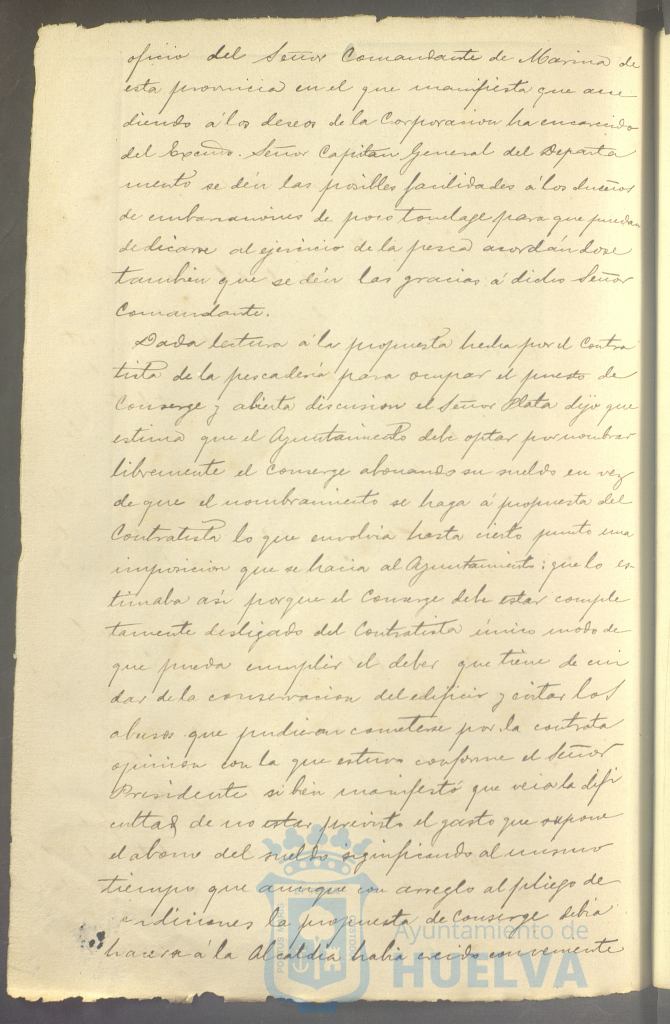 oficio del Señor Comandante de Marina de
esta provincia en el que manifiesta que acce
diendo á los deseos de la Corporacion ha encarecido
del Excmo. Señor Capitan General del Departa
mento se dén las posibles facilidades á los dueños
de embarcaciones de poco tonelage para que puedan
dedicarse al ejercicio de la pesca acordándose
tambien que se dén las gracias á dicho Señor
Comandante.
Dada lectura á la propuesta hecha por el Contra
tista de la pescadería para ocupar el puesto de
Conserge y abierta discusion el Señor Plata dijo que
estima que el Ayuntamiento debe optar por nombrar
libremente el Conserge abonando su sueldo en vez
de que el nombramiento se haga á propuesta del
Contratista lo que envolvia hasta cierto punto una
imposicion que se hacia al Ayuntamiento: que lo es-
timaba asi porque el Conserge debe estar comple
tamente desligado del Contratista único modo de
que pueda cumplir el deber que tiene de cui
dar de la conservacion del edificio y evitar los
abusos que pudieran cometerse por la contrata
opinion con la que estuvo conforme el Señor
Presidente si bien manifestó que veia la difi
cultad de no estar previsto el gasto que supone
el abono del sueldo significando al mismo
tiempo que aunque con arreglo al pliego de
condiciones la propuesta de Conserge debia
hacerse á la Alcaldia habia creido conveniente
Ayuntamiento de
HUELVA